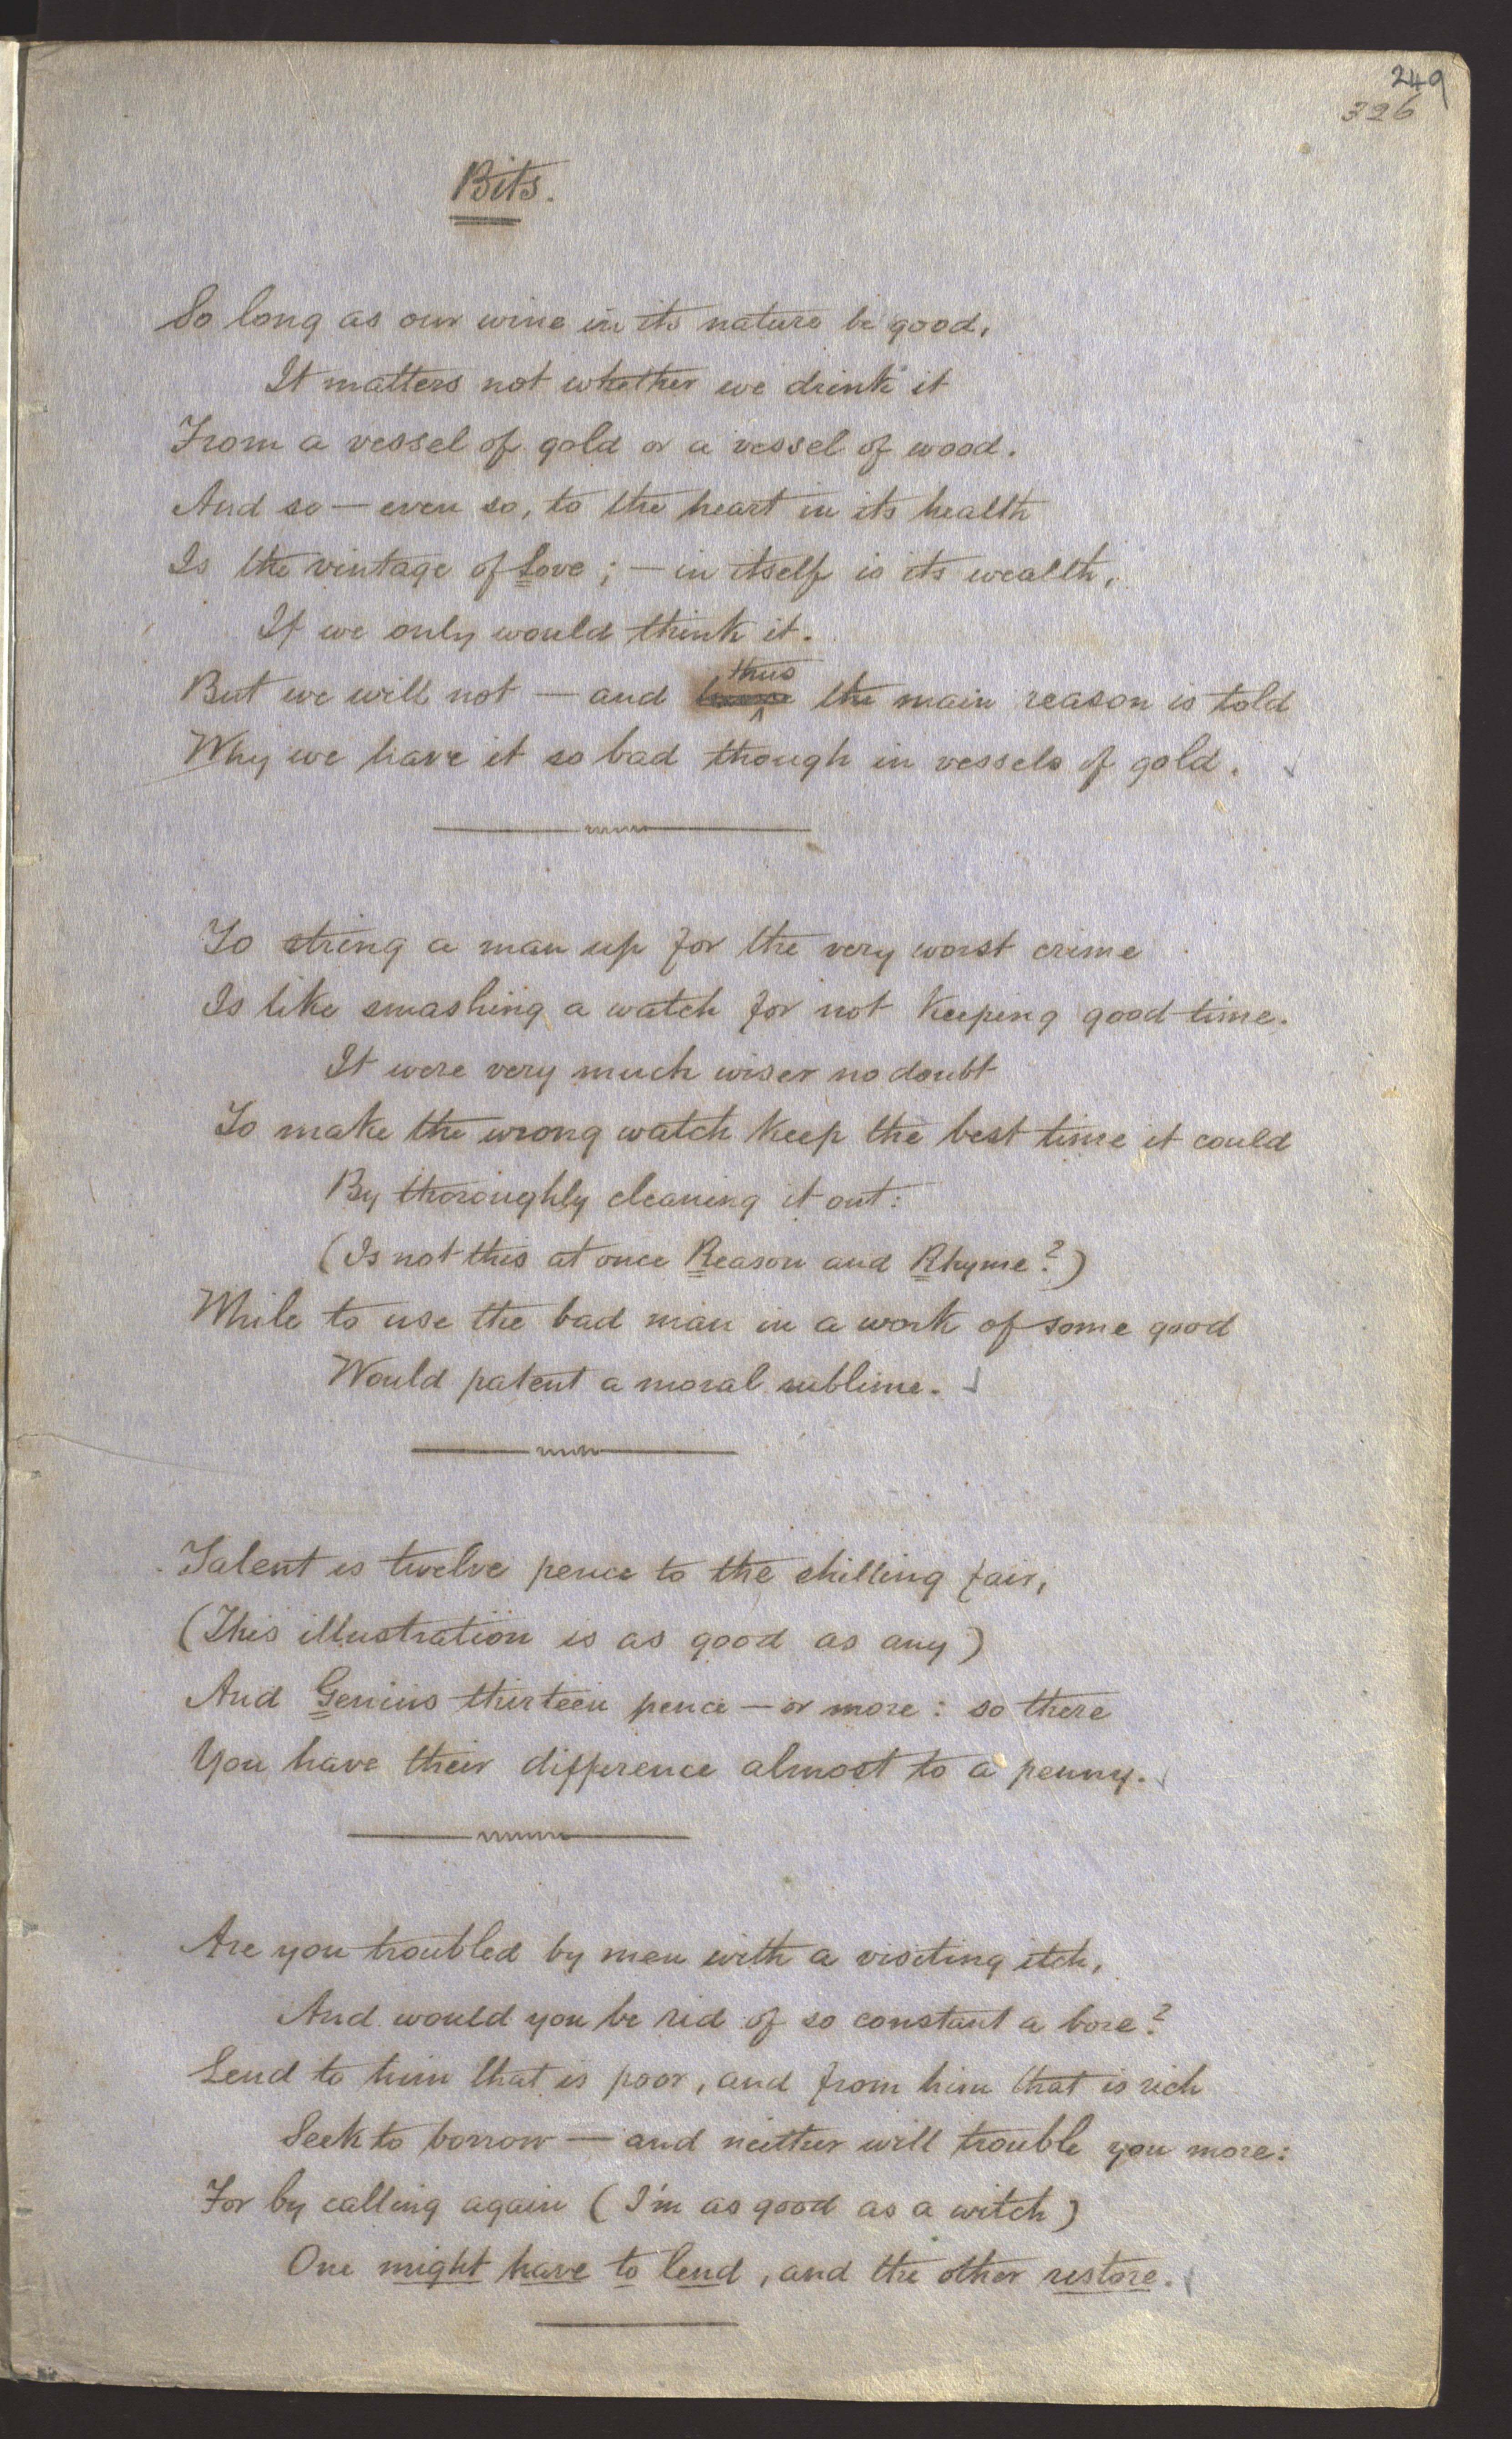 249
326
Bits.
So long as our wine in its nature be good,
It matters not whether we drink it
From a vessel of gold or a vessel of wood.
And so — even so, to the heart in its health
Is the vintage of Love; — in itself is its wealth,
If we only would think it.
thus
But we will not — and the main reason is told
Why we have it so bad though in vessels of gold.
To string a man up for the very worst crime
Is like smashing a watch for not keeping good time.
It were very much wiser no doubt
To make the wrong watch keep the best time it could
By thoroughly cleaning it out:
(Is not this at once Reason and Rhyme?)
While to use the bad man in a work of some good
Would patent a moral sublime.
Talent is twelve pence to the shilling fair,
(This illustration is as good as any)
And Genius thirteen pence — or more: so there
You have their difference almost to a penny.
Are you troubled by men with a visiting itch,
And would you be rid of so constant a bore?
Lend to him that is poor, and from him that is rich
Seek to borrow — and neither will trouble you more:
For by calling again (I'm as good as a witch)
One might have to lend, and the other restore.